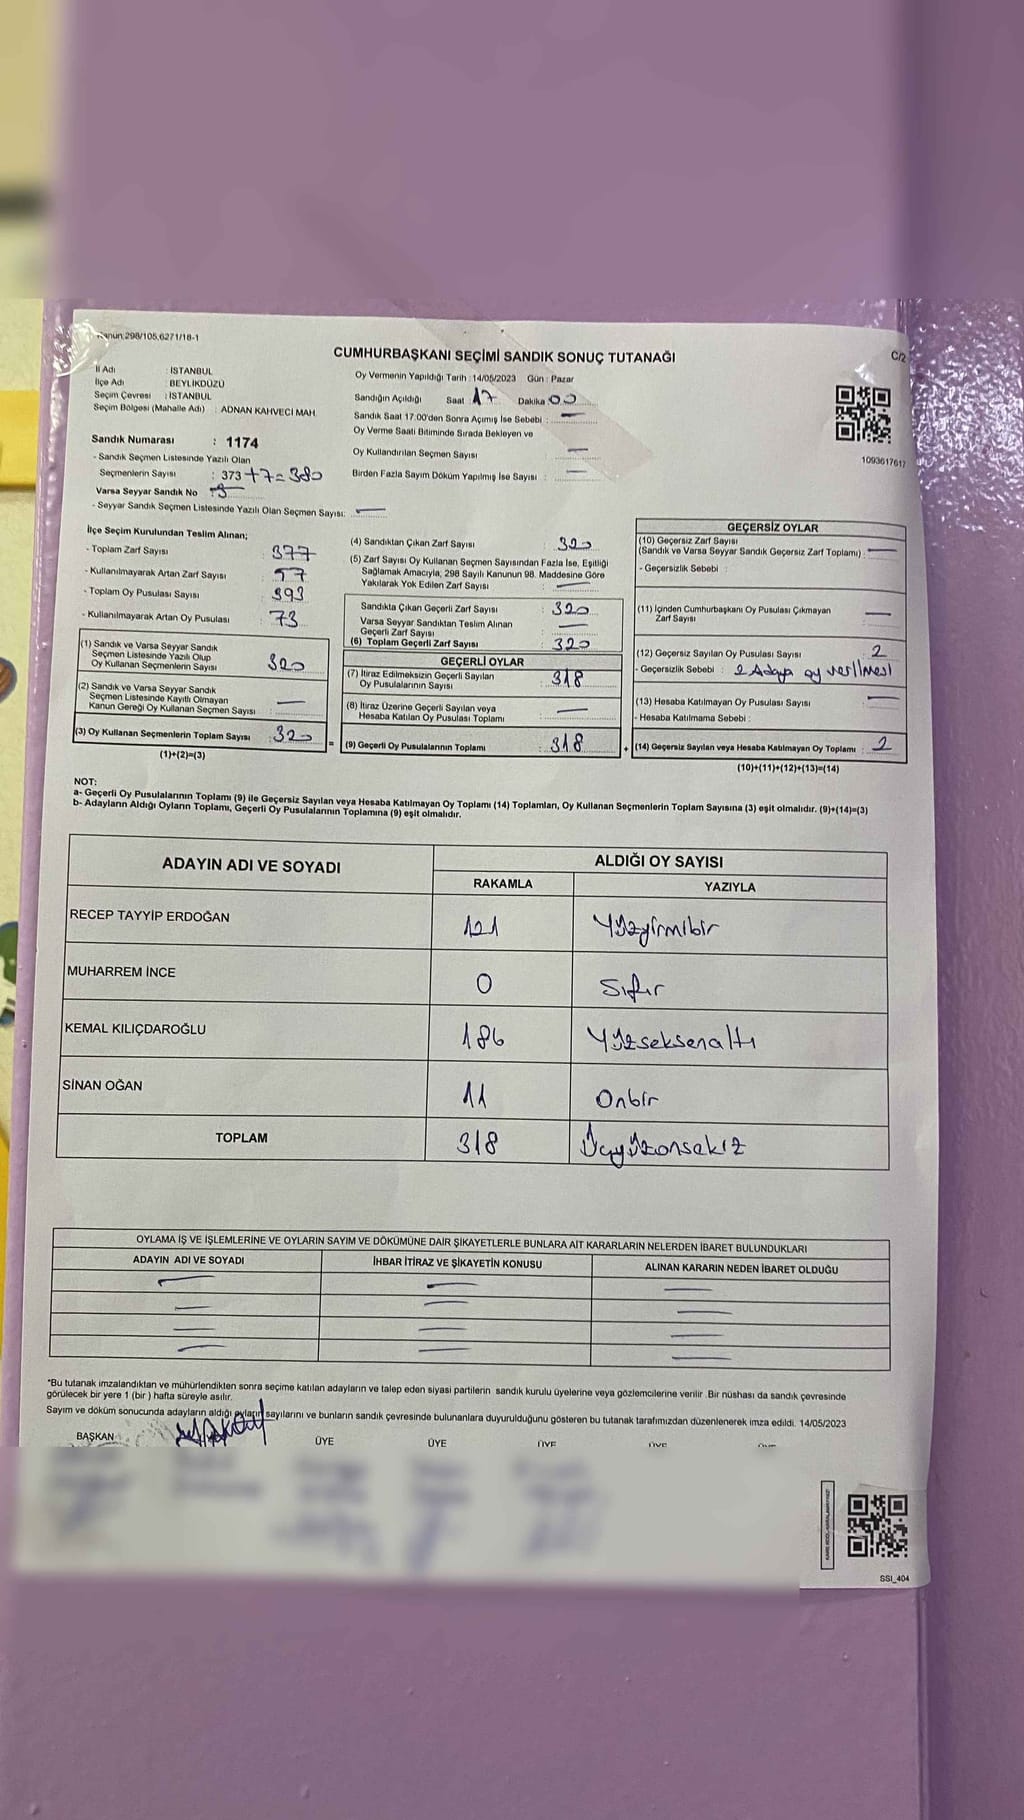 Kanun:298/105,6271/16-1
C/2
CUMHURBAŞKANI SEÇİMİ SANDIK SONUÇ TUTANAĞI
İl Adı : İSTANBUL
İlçe Adı : BEYLİKDÜZÜ
Seçim Çevresi : İSTANBUL
Seçim Bölgesi (Mahalle Adı) : ADNAN KAHVECİ MAH.
Sandık Numarası : 1174
- Sandık Seçmen Listesinde Yazılı Olan
Seçmenlerin Sayısı : 373 +7=380
Varsa Seyyar Sandık No
- Seyyar Sandık Seçmen Listesinde Yazılı Olan Seçmen Sayısı: —
Oy Vermenin Yapıldığı Tarih : 14/05/2023 Gün : Pazar
Sandığın Açıldığı Saat 17 Dakika 00
Sandık Saat 17:00'den Sonra Açımış İse Sebebi : —
Oy Verme Saati Bitiminde Sırada Bekleyen ve
Oy Kullandırılan Seçmen Sayısı : —
Birden Fazla Sayım Döküm Yapılmış İse Sayısı : —
1093617617
İlçe Seçim Kurulundan Teslim Alınan;
- Toplam Zarf Sayısı : 377
- Kullanılmayarak Artan Zarf Sayısı : 57
- Toplam Oy Pusulası Sayısı : 393
- Kullanılmayarak Artan Oy Pusulası : 73
(1) Sandık ve Varsa Seyyar Sandık
Seçmen Listesinde Yazılı Olup
Oy Kullanan Seçmenlerin Sayısı 320
(2) Sandık ve Varsa Seyyar Sandık
Seçmen Listesinde Kayıtlı Olmayan
Kanun Gereği Oy Kullanan Seçmen Sayısı : —
(3) Oy Kullanan Seçmenlerin Toplam Sayısı : 320
(1)+(2)=(3)
(4) Sandıktan Çıkan Zarf Sayısı : 320
(5) Zarf Sayısı Oy Kullanan Seçmen Sayısından Fazla İse, Eşitliği
Sağlamak Amacıyla, 298 Sayılı Kanunun 98. Maddesine Göre
Yakılarak Yok Edilen Zarf Sayısı : —
Sandıkta Çıkan Geçerli Zarf Sayısı : 320
Varsa Seyyar Sandıktan Teslim Alınan
Geçerli Zarf Sayısı : —
(6) Toplam Geçerli Zarf Sayısı : 320
GEÇERLİ OYLAR
(7) İtiraz Edilmeksizin Geçerli Sayılan
Oy Pusulalarının Sayısı : 318
(8) İtiraz Üzerine Geçerli Sayılan veya
Hesaba Katılan Oy Pusulası Toplamı : —
= (9) Geçerli Oy Pusulalarının Toplamı : 318
GEÇERSİZ OYLAR
(10) Geçersiz Zarf Sayısı
(Sandık ve Varsa Seyyar Sandık Geçersiz Zarf Toplamı) : —
- Geçersizlik Sebebi :
(11) İçinden Cumhurbaşkanı Oy Pusulası Çıkmayan
Zarf Sayısı : —
(12) Geçersiz Sayılan Oy Pusulası Sayısı : 2
- Geçersizlik Sebebi : 2 Adaya oy verilmesi
(13) Hesaba Katılmayan Oy Pusulası Sayısı : —
- Hesaba Katılmama Sebebi :
+ (14) Geçersiz Sayılan veya Hesaba Katılmayan Oy Toplamı : 2
(10)+(11)+(12)+(13)=(14)
NOT:
a- Geçerli Oy Pusulalarının Toplamı (9) ile Geçersiz Sayılan veya Hesaba Katılmayan Oy Toplamı (14) Toplamları, Oy Kullanan Seçmenlerin Toplam Sayısına (3) eşit olmalıdır. (9)+(14)=(3)
b- Adayların Aldığı Oyların Toplamı, Geçerli Oy Pusulalarının Toplamına (9) eşit olmalıdır.
ADAYIN ADI VE SOYADI ALDIĞI OY SAYISI
RAKAMLA YAZIYLA
RECEP TAYYİP ERDOĞAN 121 Yüzyirmibir
MUHARREM İNCE 0 Sıfır
KEMAL KILIÇDAROĞLU 186 Yüzseksenaltı
SİNAN OĞAN 11 Onbir
TOPLAM 318 Üçyüzonsekiz
OYLAMA İŞ VE İŞLEMLERİNE VE OYLARIN SAYIM VE DÖKÜMÜNE DAİR ŞİKAYETLERLE BUNLARA AİT KARARLARIN NELERDEN İBARET BULUNDUKLARI
ADAYIN ADI VE SOYADI İHBAR İTİRAZ VE ŞİKAYETİN KONUSU ALINAN KARARIN NEDEN İBARET OLDUĞU
*Bu tutanak imzalandıktan ve mühürlendikten sonra seçime katılan adayların ve talep eden siyasi partilerin sandık kurulu üyelerine veya gözlemcilerine verilir .Bir nüshası da sandık çevresinde
görülecek bir yere 1 (bir ) hafta süreyle asılır.
Sayım ve döküm sonucunda adayların aldığı oyların sayılarını ve bunların sandık çevresinde bulunanlara duyurulduğunu gösteren bu tutanak tarafımızdan düzenlenerek imza edildi. 14/05/2023
BAŞKAN ÜYE ÜYE ÜYE ÜYE
SSI_404